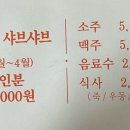 샤브샤브
월~4월)
인분
000원
소주 5,
맥주 5,
음료수 2,
식사 2,
(죽/우동